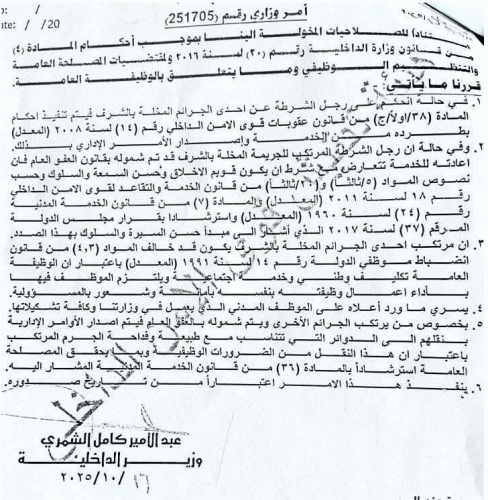 أمر وزاري رقم (251705)
No:        /
Date:    /    /20
استناداً للصلاحيات المخولة الينا بموجب أحكام المادة (٤)
من قانون وزارة الداخلية رقم (٢٠) لسنة ٢٠١٦ ولمقتضيات المصلحة العامة
والتنظيم الوظيفي وما يتعلق بالوظيفة العامة.
قررنا ما يأتي:
١. في حالة الحكم على رجل الشرطة عن احدى الجرائم المخلة بالشرف فيتم تنفيذ احكام
المادة (٣٨/اولاً/ج) من قانون عقوبات قوى الامن الداخلي رقم (١٤) لسنة ٢٠٠٨ (المعدل)
بطرده من الخدمة وإصدار الأمر الإداري بذلك
٢. وفي حالة ان رجل الشرطة المرتكب للجريمة المخلة بالشرف قد تم شموله بقانون العفو العام فإن
اعادته للخدمة تتعارض مع شرط ان يكون قويم الاخلاق وحسن السمعة والسلوك وحسب
نصوص المواد (٥/ثالثاً) و (ثالثاً) من قانون الخدمة والتقاعد لقوى الامن الداخلي
رقم ١٨ لسنة ٢٠١١ (المعدل) والمادة (٧) من قانون الخدمة المدنية
رقم (٢٤) لسنة ١٩٦٠ (المعدل) واسترشادا بقرار مجلس الدولة
المرقم (٣٧) لسنة ٢٠١٧ الذي أشار الى مبدأ حسن السيرة والسلوك بهذا الصدد.
٣. ان مرتكب احدى الجرائم المخلة بالشرف يكون قد خالف المواد (٤،٣) من قانون
انضباط موظفي الدولة رقم لسنة ١٩٩١ (المعدل) باعتبار ان الوظيفة
العامة تكليف وطني وخدمة اجتماعية ويلتزم الموظف فيها
بأداء اعمال وظيفته بنفسه بأمانة وشعور بالمسؤولية.
٤. يسري ما ورد أعلاه على الموظف المدني الذي يعمل في وزارتنا وكافة تشكيلاتها.
٥. بخصوص من يرتكب الجرائم الأخرى ويتم شموله بالعفو العام فيتم اصدار الأوامر الإدارية
بنقلهم الى الدوائر التي تتناسب مع طبيعة وفداحة الجرم المرتكب
باعتبار ان هذا النقل من الضرورات الوظيفية وبما يحقق المصلحة
العامة استرشاداً بالمادة (٣٦) من قانون الخدمة المدنية المشار اليه.
٦. ينفذ هذا الامر اعتباراً من تاريخ صدوره.
عبد الأمير كامل الشمري
وزير الداخلية
١٦/١٠/٢٠٢٥